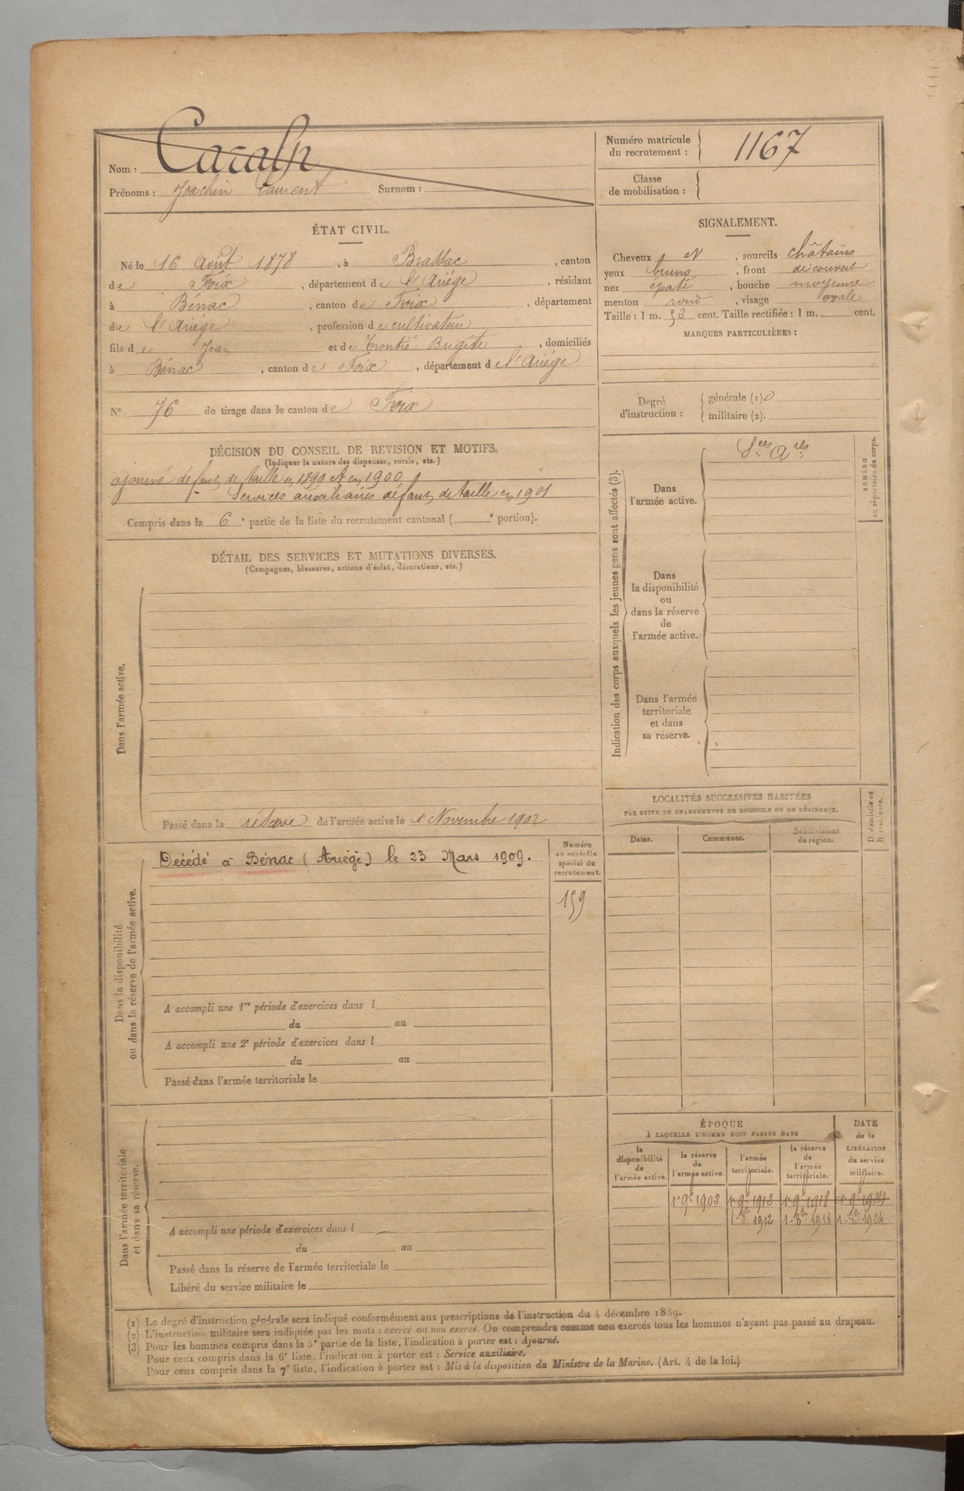 Nom : Cacalp
Prénoms : Joachin Laurent Surnom :
Numéro matricule du recrutement : 1167
Classe de mobilisation :
ÉTAT CIVIL.
Né le 16 Août 1878, à Brassac, canton
de Foix, département de l'Ariège, résidant
à Bénac, canton de Foix, département
de l'Ariège, profession de cultivateur
fils de Jean et de Brigite, domiciliés
à Bénac, canton de Foix, département de l'Ariège
N° 76 de tirage dans le canton de Foix
SIGNALEMENT.
Cheveux et, sourcils châtains
yeux bruns, front découvert
nez épaté, bouche moyenne
menton rond, visage ovale
Taille : 1 m. 53 cent. Taille rectifiée : 1 m. cent.
MARQUES PARTICULIÈRES :
Degré d'instruction : générale (1) 0
militaire (2).
DÉCISION DU CONSEIL DE REVISION ET MOTIFS.
(Indiquer la nature des dispenses, sursis, etc.)
ajourné défaut de taille en 1899 et en 1900
Services auxiliaires défaut de taille en 1901
Compris dans la 6e partie de la liste du recrutement cantonal ( e portion).
DÉTAIL DES SERVICES ET MUTATIONS DIVERSES.
(Campagnes, blessures, actions d'éclat, décorations, etc.)
Dans l'armée active.
Passé dans la réserve de l'armée active le 1 Novembre 1902
Indication des corps auxquels les jeunes gens sont affectés (3).
Dans l'armée active.
Sces Ares
NUMÉRO au répertoire du corps.
Dans la disponibilité ou dans la réserve de l'armée active.
Dans l'armée territoriale et dans sa réserve.
Dans la disponibilité ou dans la réserve de l'armée active.
Décédé à Bénac (Ariège) le 23 Mars 1909.
Numéro au contrôle spécial du recrutement.
159
A accompli une 1re période d'exercices dans l
du au
A accompli une 2e période d'exercices dans l
du au
Passé dans l'armée territoriale le
LOCALITÉS SUCCESSIVES HABITÉES
PAR SUITE DE CHANGEMENTS DE DOMICILE OU DE RÉSIDENCE.
Dates. Communes. Subdivisions de région. D domicile ou R résidence.
Dans l'armée territoriale et dans sa réserve.
A accompli une période d'exercices dans l
du au
Passé dans la réserve de l'armée territoriale le
Libéré du service militaire le
ÉPOQUE
À LAQUELLE L'HOMME DOIT PASSER DANS
DATE de la LIBÉRATION du service militaire.
la disponibilité de l'armée active. la réserve de l'armée active. l'armée territoriale. la réserve de l'armée territoriale.
1 9e 1902 1 9e 1912 1 9e 1918
1912 1918
(1) Le degré d'instruction générale sera indiqué conformément aux prescriptions de l'instruction du 4 décembre 1889.
(2) L'instruction militaire sera indiquée par les mots : exercé ou non exercé. On comprendra comme non exercés tous les hommes n'ayant pas passé au drapeau.
(3) Pour les hommes compris dans la 5e partie de la liste, l'indication à porter est : Ajourné.
Pour ceux compris dans la 6e liste, l'indication à porter est : Service auxiliaire.
Pour ceux compris dans la 7e liste, l'indication à porter est : Mis à la disposition du Ministre de la Marine. (Art. 4 de la loi.)